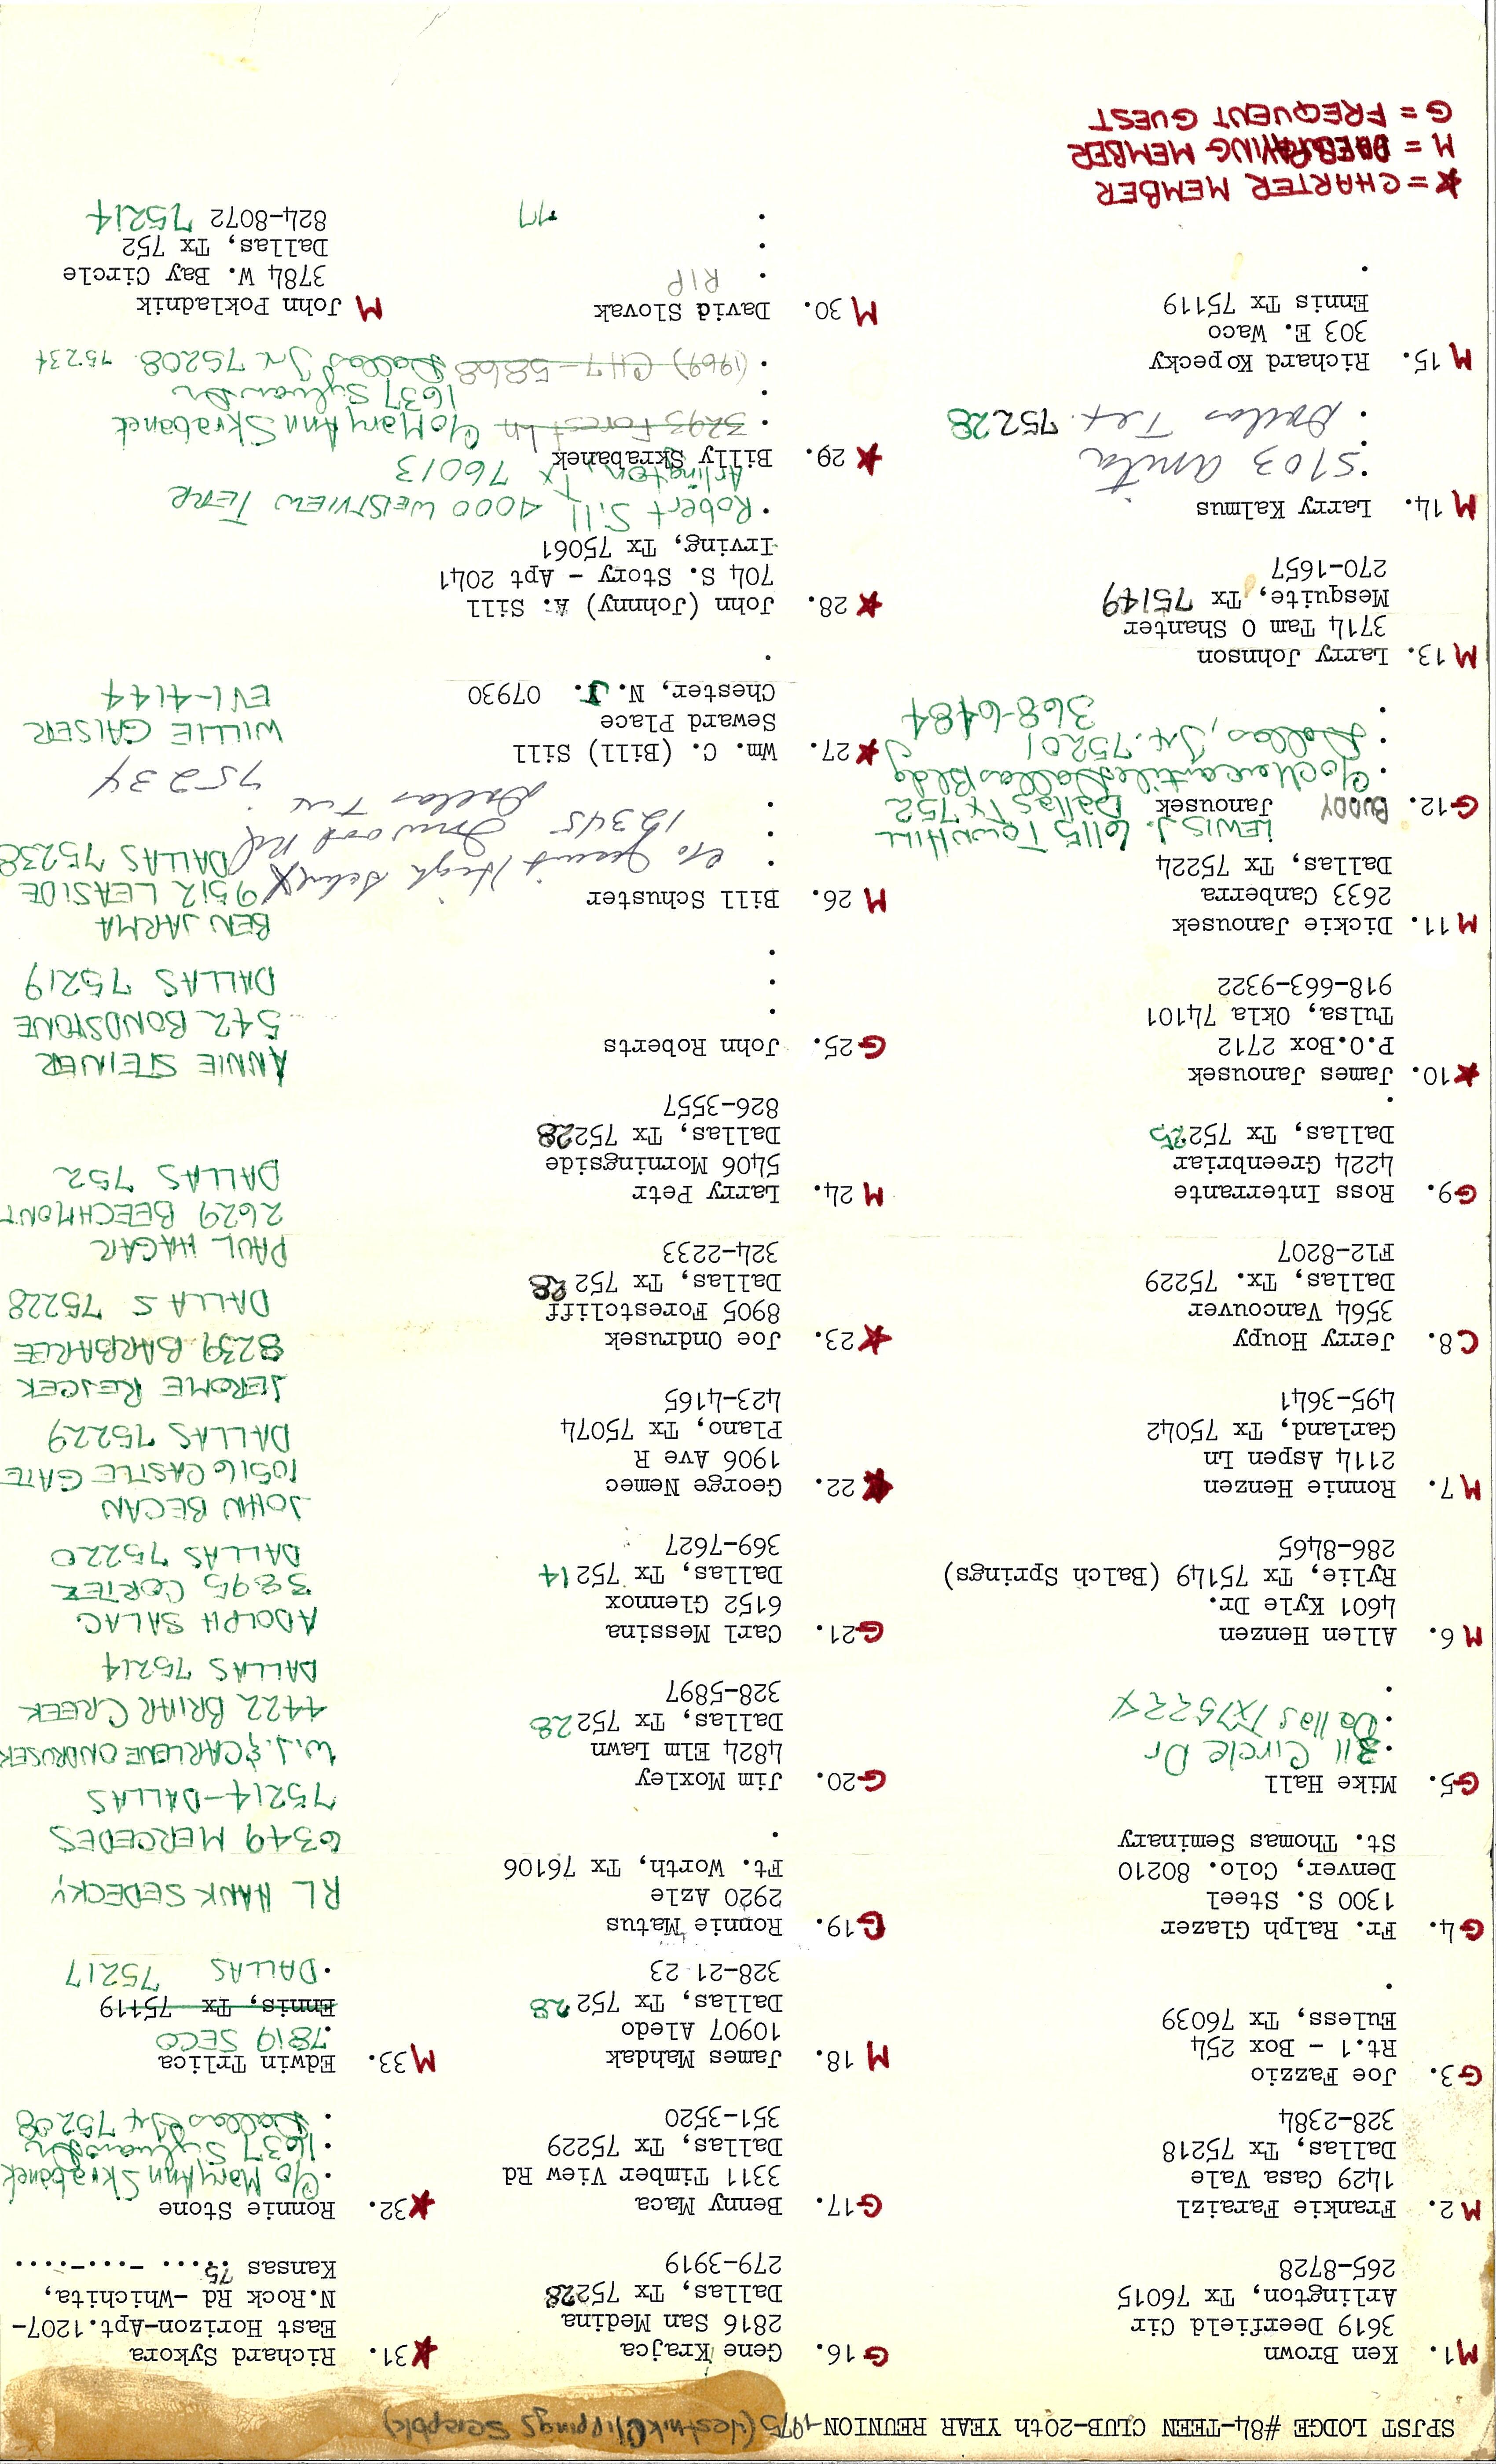 SPJST LODGE #84-TEEN CLUB-20th YEAR REUNION-1975 (Vestnik Clippings Scrapbk)
M1. Ken Brown
3619 Deerfield Cir
Arlington, Tx 76015
265-8728
M2. Frankie Faraizl
1429 Casa Vale
Dallas, Tx 75218
328-2384
G3. Joe Fazzio
Rt.1 - Box 254
Euless, Tx 76039
.
G4. Fr. Ralph Glazer
1300 S. Steel
Denver, Colo. 80210
St. Thomas Seminary
G5. Mike Hall
.311 Circle Dr
.Dallas TX 75224
.
M6. Allen Henzen
4601 Kyle Dr.
Rylie, Tx 75149 (Balch Springs)
286-8465
M7. Ronnie Henzen
2114 Aspen Ln
Garland, Tx 75042
495-3641
C8. Jerry Houpy
3564 Vancouver
Dallas, Tx. 75229
F12-8207
G9. Ross Interrante
4224 Greenbriar
Dallas, Tx 75225
.
★10. James Janousek
P.O.Box 2712
Tulsa, Okla 74101
918-663-9322
M11. Dickie Janousek
2633 Canberra
Dallas, Tx 75224
LEWIS J. 6115 TOWNHILL
G12. BUDDY Janousek Dallas Tx 752
. c/o Mercantile Dallas Bldg
. Dallas, Tx. 75201
. 368-6484
M13. Larry Johnson
3714 Tam O Shanter
Mesquite, Tx 75149
270-1657
M14. Larry Kalmus
.5103 Anita
. Dallas Tex. 75228
M15. Richard Kopecky
303 E. Waco
Ennis Tx 75119
.
★=CHARTER MEMBER
M = DUES PAYING MEMBER
G = FREQUENT GUEST
G16. Gene Krajca
2816 San Medina
Dallas, Tx 75228
279-3919
G17. Benny Maca
3311 Timber View Rd
Dallas, Tx 75229
351-3520
M18. James Mahdak
10907 Aledo
Dallas, Tx 75228
328-21 23
G19. Ronnie Matus
2920 Azle
Ft. Worth, Tx 76106
.
G20. Jim Moxley
4824 Elm Lawn
Dallas, Tx 75228
328-5897
G21. Carl Messina
6152 Glennox
Dallas, Tx 75214
369-7627
★22. George Nemec
1906 Ave R
Plano, Tx 75074
423-4165
★23. Joe Ondrusek
8905 Forestcliff
Dallas, Tx 75228
324-2233
M24. Larry Petr
5406 Morningside
Dallas, Tx 75228
826-3557
G25. John Roberts
.
.
.
M26. Bill Schuster
. c/o Jesuit High School
. 12345 Inwood Rd
. Dallas Tex. 75234
★27. Wm. C. (Bill) Sill
Seward Place
Chester, N.J. 07930
.
★28. John (Johnny) A. Sill
704 S. Story - Apt 2041
Irving, Tx 75061
. Robert Sill 4000 WESTVIEW TERR
Arlington, Tx 76013
★29. Billy Skrabanek
. 3293 Forest Ln c/o Mary Ann Skrabanek
. 1637 Sylvan Dr
. (1969) CH7-5868 Dallas Tx 75208 75234
M30. David Slovak
. RIP
.
. '77
★31. Richard Sykora
East Horizon-Apt.1207-
N.Rock Rd -Whichita,
Kansas 75... -...-....
★32. Ronnie Stone
. c/o Mary Ann Skrabanek
. 1637 Sylvan Dr
. Dallas Tx 75208
M33. Edwin Trlica
.7819 SECO
Ennis, Tx 75119
.DALLAS 75217
RL HANK SEDECKY
6349 MERCEDES
75214-DALLAS
W.J. & CARLENE ONDRUSEK
4422 BRIAR CREEK
DALLAS 75214
ADOLPH SALAC
3895 CORTEZ
DALLAS 75220
JOHN BECAN
10516 CASTLE GATE
DALLAS 75229
JEROME REJCEK
8239 BARBAREE
DALLAS 75228
PAUL HAGAR
2629 BEECHMONT
DALLAS 752
ANNIE STEINER
542 BONDSTONE
DALLAS 75219
BEN JARMA
9512 LEASIDE
DALLAS 75238
WILLIE GAISER
EV1-4144
M John Pokladnik
3784 W. Bay Circle
Dallas, Tx 752
824-8072 75214